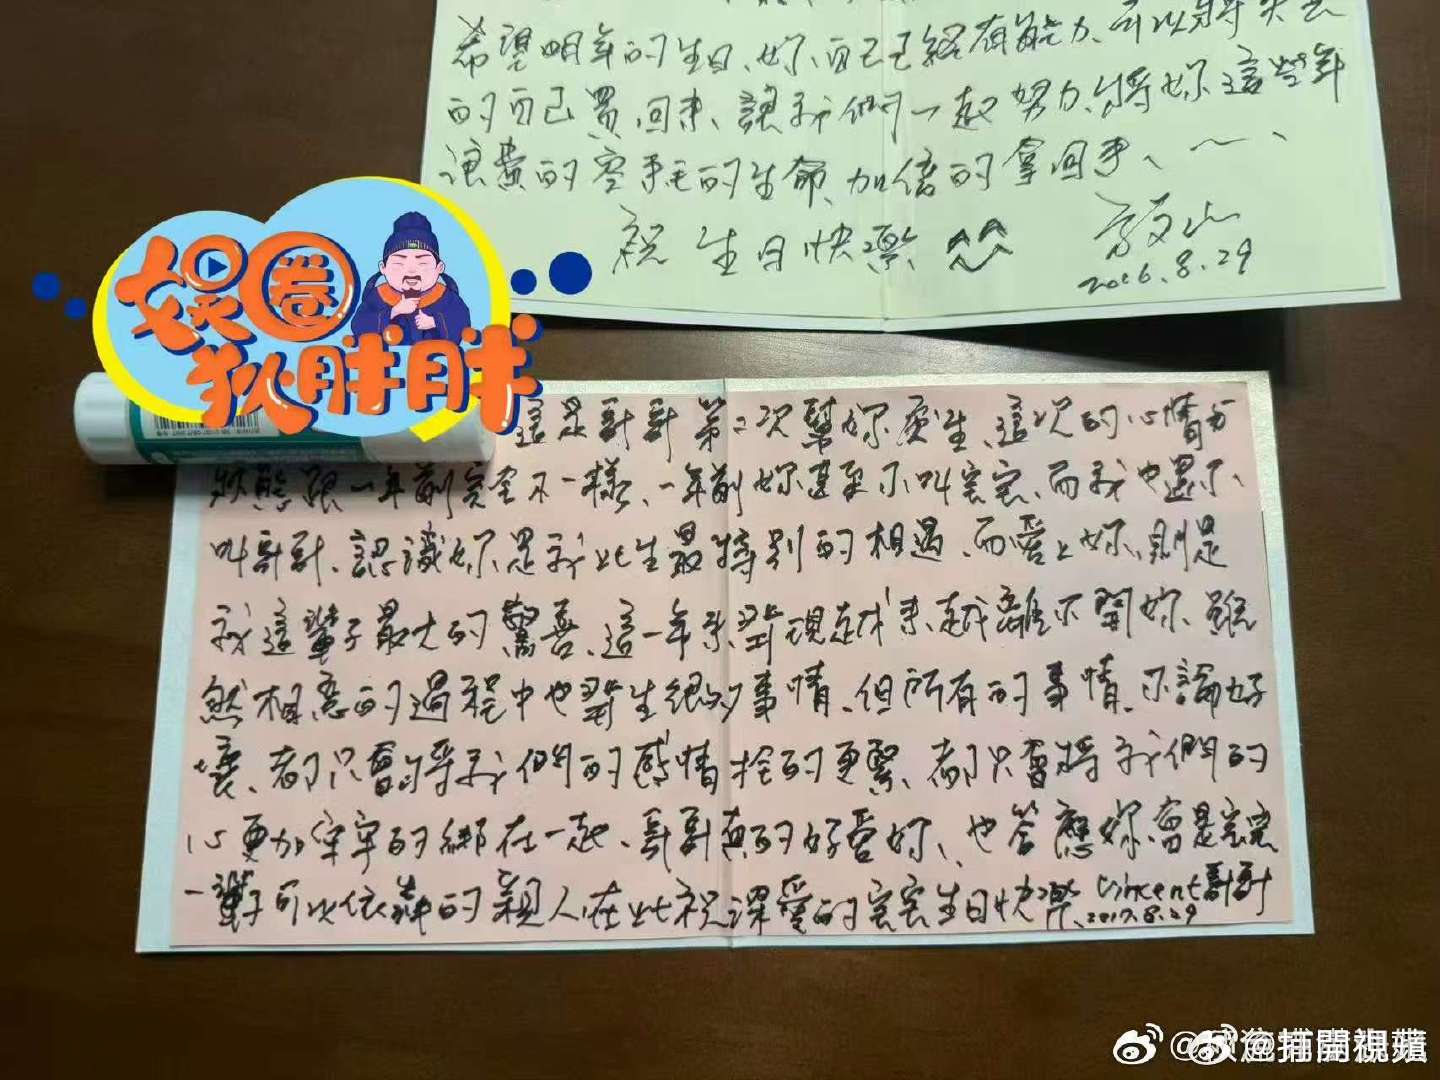 希望明年的生日、妳、自己已經有能力、可以將失去
的自己買回來、讓我們一起努力、將妳這些年
浪費的空白的生命、加倍的拿回來、
祝 生日快樂 ^^ 啟山
2016.8.29
娛圈
狄胖胖
這是哥哥第二次幫妳慶生、這次的心情與
狀態跟一年前完全不一樣、一年前妳甚至不叫寶寶、而我也還不
叫哥哥、認識妳是我此生最特別的相遇、而愛上妳、則是
我這輩子最大的驚喜、這一年來、發現越來越離不開妳、雖
然相戀的過程中也發生很多事情、但所有的事情、不論好
壞、都只會將我們的感情拴的更緊、都只會將我們的
心更加牢牢的綁在一起、哥哥真的好愛妳、也答應妳會是寶寶
一輩子可以依靠的親人在此祝深愛的寶寶生日快樂 Vincent哥哥
2017.8.29